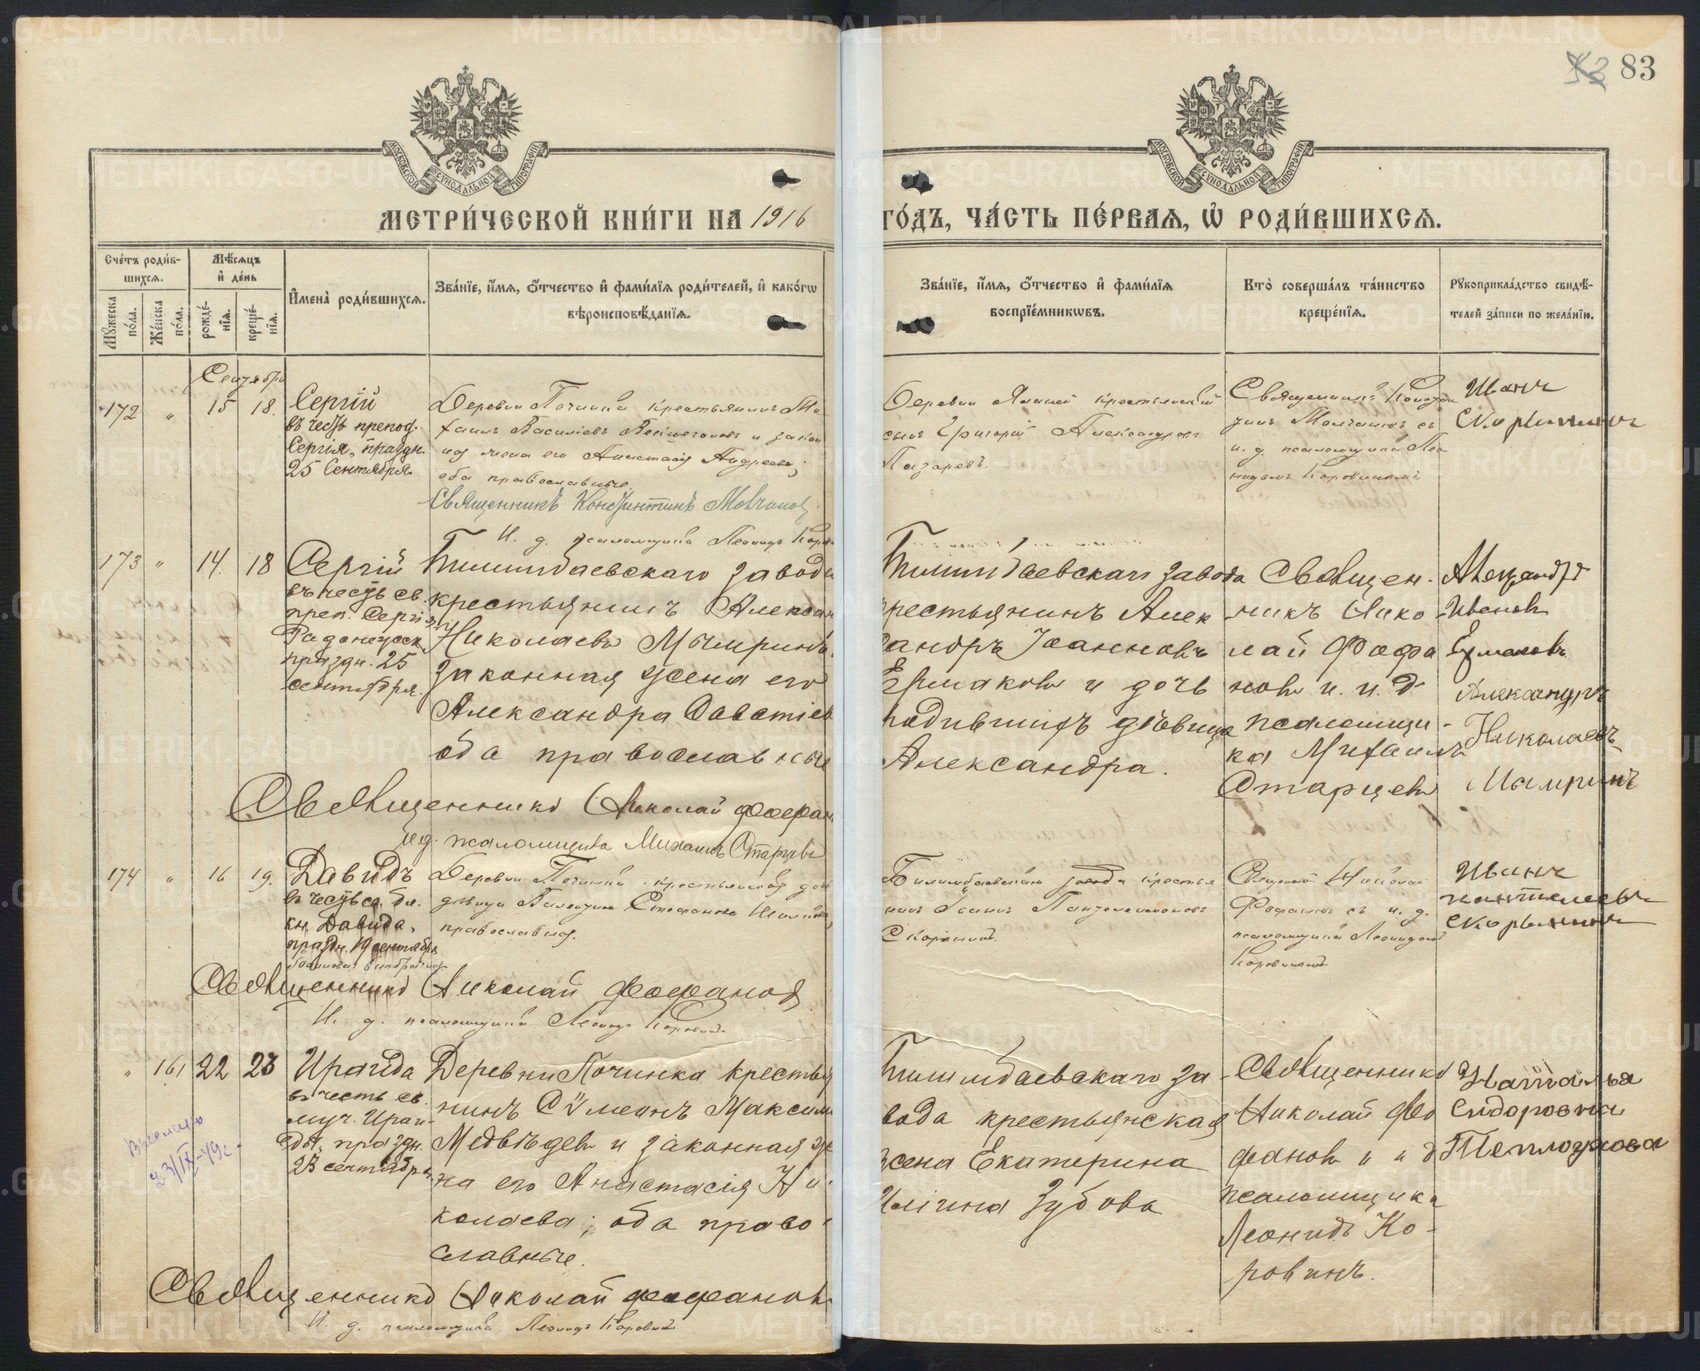 83
МЕТРИ́ЧЕСКОЙ КНИ́ГИ НА 1916
ГО́ДЪ, ЧА́СТЬ ПЕ́РВАЯ, Ѡ҆ РОДИ́ВШИХСЯ.
Сче́тъ роди́в-
шихся.
Мѣ́сяцъ
и҆ де́нь
Му́жеска
по́ла.
Же́нска
по́ла.
рожде́-
нїя.
креще́-
нїя.
И҆мена̀ роди́вшихся.
Зва́нїе, и҆́мя, ѻ҆́тчество и҆ фами́лїя роди́телей, и҆ како́гѡ
вѣроисповѣ́данїя.
Зва́нїе, и҆́мя, ѻ҆́тчество и҆ фами́лїя
воспрїе́мникѡвъ.
Кто̀ соверша́лъ та́инство
креще́нїя.
Рꙋкоприкла́дство свидѣ́-
телей за́писи по жела́нїю.
Сентябрь
172 " 15 18.
Сергій
въ честь препод.
Сергія, праздн.
25 Сентября
Деревни Починка крестьянинъ Ми-
хаилъ Васильевъ и закон
ная жена его Анастасія Андреева,
оба православные.
Священникъ Константинъ Молчановъ
И. д. псаломщика Леонидъ Коров
сынъ Григорій Александровъ
Лазаревъ.
Священникъ Констан
тинъ Молчановъ съ
и. д. псаломщика Лео
нидомъ Коровинымъ
Иванъ
Скорынинъ
173 " 14. 18
Сергій
въ честь св.
преп. Сергія
Радонежск.
праздн. 25
сентября.
Билимбаевскаго завода
крестьянинъ Алексан
Николаевъ Мамринъ
законная жена его
Александра Саватіев
оба православные
Священникъ Николай Фофан
и д. псаломщика Михаилъ Старцевъ
Билимбаевскаго завода
крестьянинъ Алек
сандръ Іоанновъ
Ермаковъ и дочь
родившихъ дѣвица
Александра.
Священ-
никъ Нико-
лай Фофа
новъ и. и. д
псаломщи-
ка Михаилъ
Старцевъ
Александръ
Ивановъ
Ермаковъ
Александръ
Николаевъ
Мамринъ
174 " 16 19.
Давидъ
въ честь св. бл.
кн. Давида,
праздн. 19 сентября
Деревни Починка крестьянская
дѣвица Валентина Стефанова
православная.
Священникъ Николай Фофановъ
И. д. псаломщика Леонидъ Коровинъ
Билимбаевскаго завода крестья
нинъ Іоаннъ Пантелеимоновъ
Скорынинъ.
Священникъ Николай
Фофановъ съ и. д.
псаломщика Леонидомъ
Коровинымъ
Иванъ
пантелеевъ
скорынинъ
" 161 22 23
Ираида
въ честь св.
муч. Ираи-
ды, праздн.
23 сентября
Деревни Починка крестья
нинъ Сумеонъ Максим
Медвѣдевъ и законная же
на его Анастасія Ни-
колаева; оба право-
славные.
Священникъ Николай Фофановъ
И. д. псаломщика Леонидъ Коровинъ
Билимбаевскаго за-
вода крестьянская
жена Екатерина
Ильина Зубова
Священникъ
Николай Фо
фановъ и и д
псаломщика
Леонидъ Ко-
ровинъ.
Наталья
Сидоровна
Теплоухова
METRIKI.GASO-URAL.RU